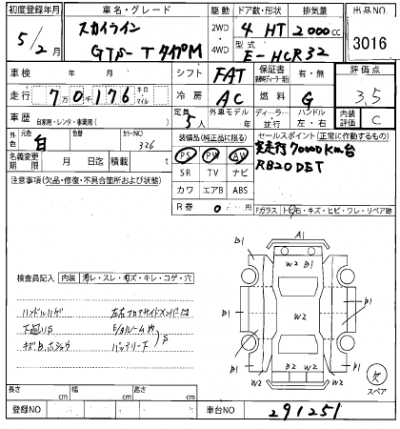 初度登録年月 車名・グレード 駆動 ドア数・形状 排気量 出品NO
5/2月 スカイライン 2WD 4 HT 2000cc 3016
GTS-T タイプM 4WD 型式 E-HCR32
車検 年 月 シフト FAT 保証書 有・無 評価点
走行 7万0,176 キロ マイル 冷房 AC 燃料 G 3.5
車歴 自家用・レンタ・事業用( ) 定員 5人 外車モデル 年 ディーラー ハンドル 左・右 内装評価 C
外色 元色 白 カラーNO 326 装備品(純正品に限る) セールスポイント(正常に作動するもの)
名義変更期限 月 日迄 積載 t PS PW AW 実走行70000Km台
SR TV ナビ RB20DET
注意事項(欠品・修復・不具合箇所および状態) カワ エアB ABS
R券 0 Fガラス トビ石・キズ・ヒビ・ワレ・リペア跡
A1
B1 B1
W2 B1
検査員記入 内装 汚レ・スレ・キズ・キレ・コゲ・穴
B1 W2 B1
ハンドルハゲ
下廻りS
バッテリー下
B1 W2 B1 B1
W2 W2 スペア
長さ cm 幅 cm 高さ cm
登録NO 車台NO 291251